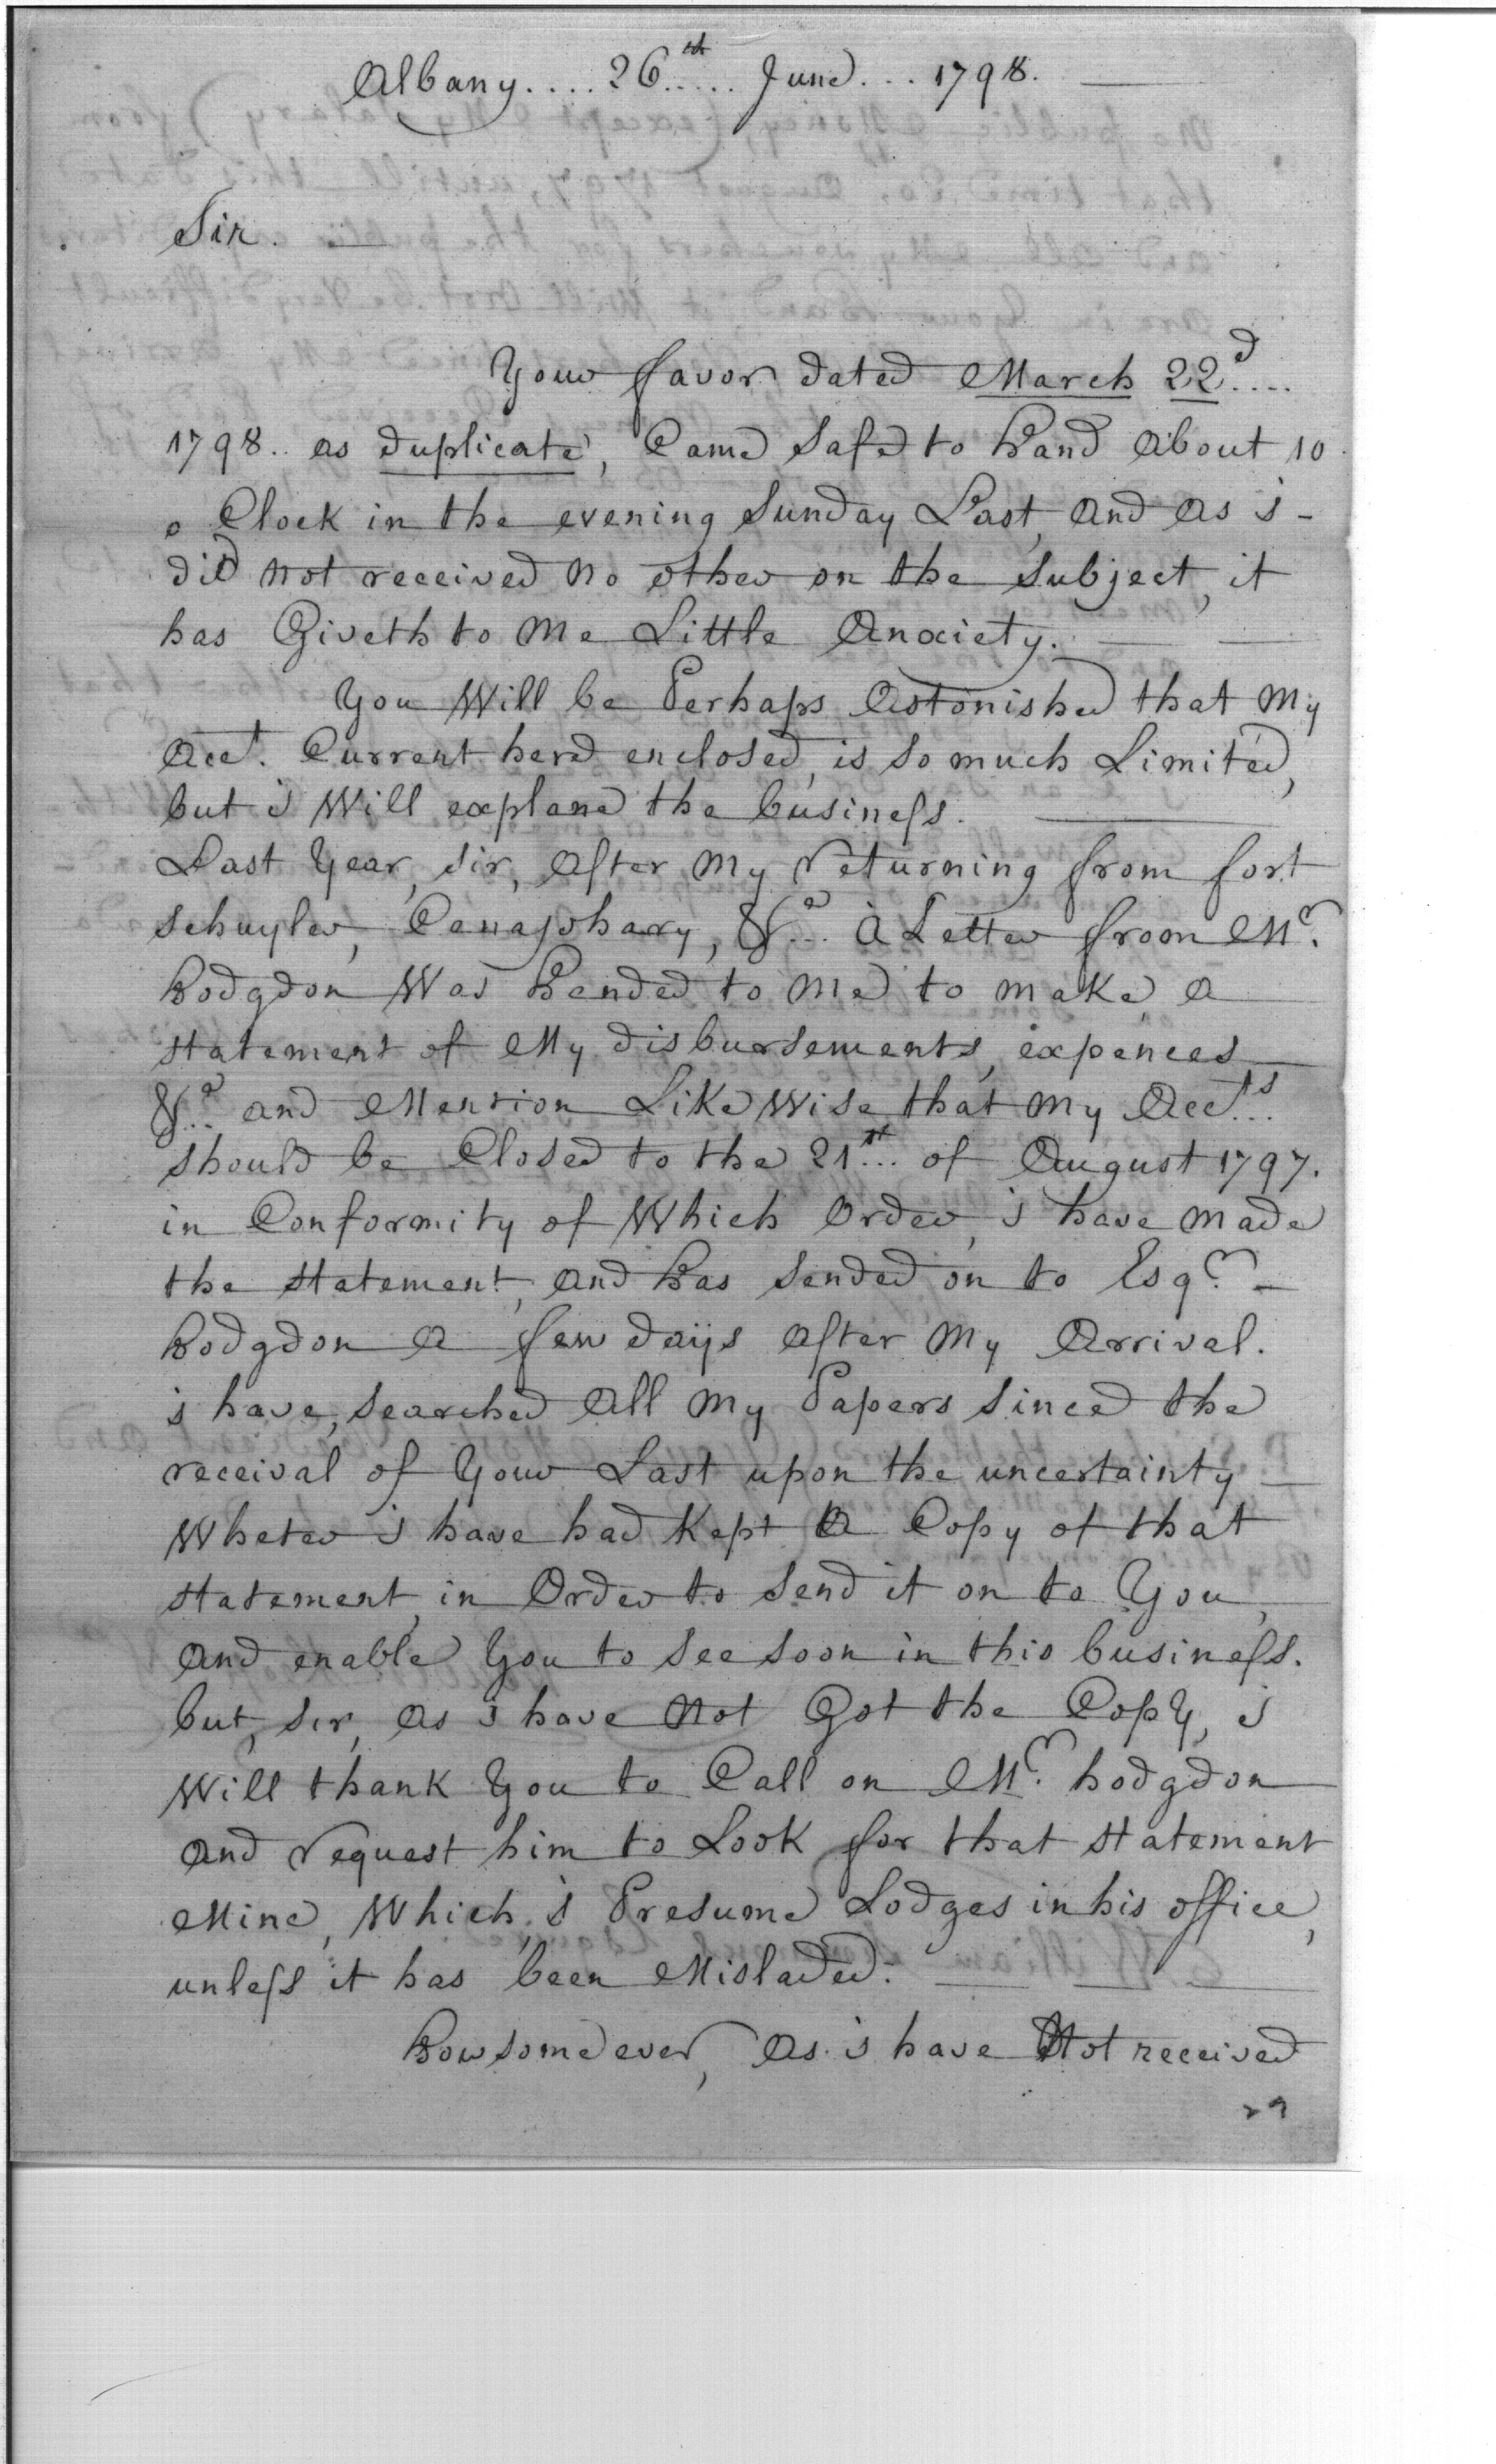 Albany.... 26th..... June... 1798.
Sir.
Your favor dated March 22d....
1798.. as duplicate, Came Safe to hand about 10
o Clock in the evening Sunday Last, and as i
did not received no other on the Subject, it
has Giveth to me Little Anxiety.
You Will be Perhaps Astonished that My
Acct. Current here enclosed, is so much Limited,
but i Will explane the business.
Last Year, sir, After my returning from fort
schuyler, Canajohary, &a... à Letter from Mr.
hodgdon Was handed to me to make a
statement of My disbursements, expences
&a... and Mention Like Wise that my Accts...
should be Closed to the 21st... of August 1797.
in Conformity of Which Order, i have made
the statement, and has sended on to Esqr.
hodgdon a few daijs after my Arrival.
i have, searched All my Papers since the
receival of Your Last upon the uncertainty
Wheter i have had Kept a Copy of that
statement, in Order to send it on to You,
and enable You to see soon in this business.
but, sir, as i have Not Got the Copy, i
Will thank You to Call on Mr. hodgdon
and request him to Look for that statement
Mine, Which, i Presume Lodges in his office,
unless it has been Misladed.
howsomeever, as i have Not received